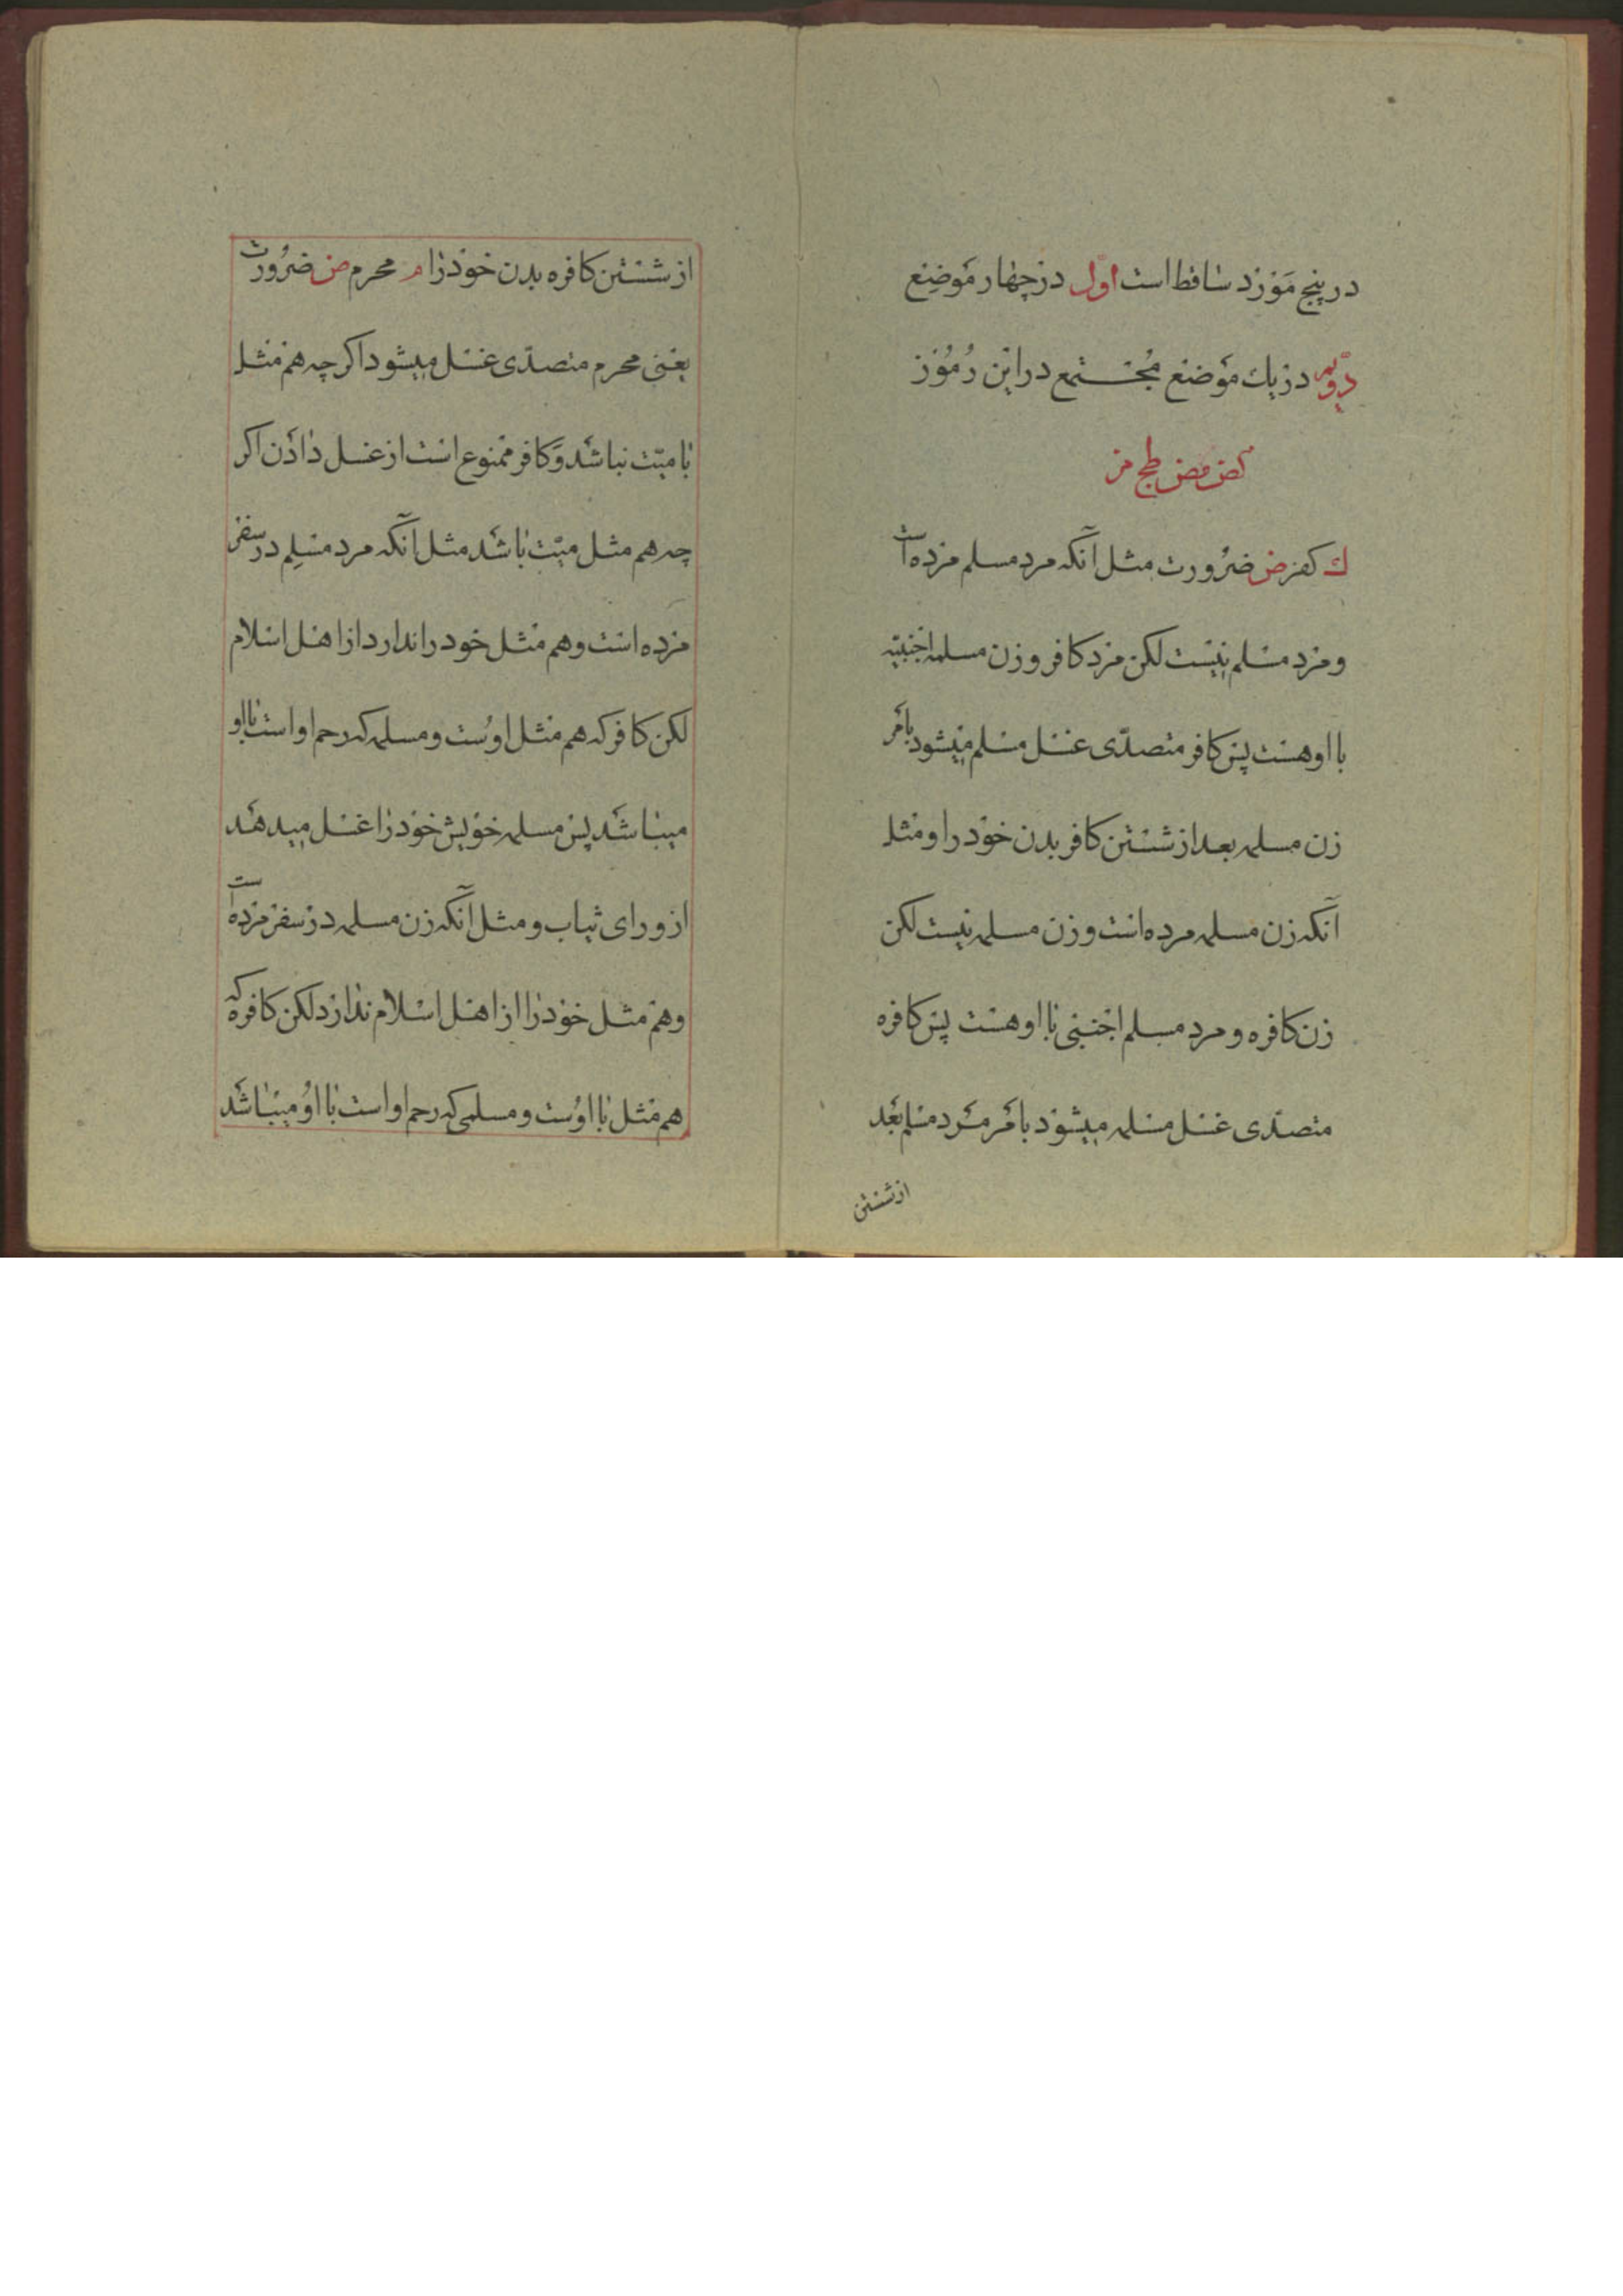 در پنج مورد ساقط است اوّل در چهار موضع
دویم در یك موضع مجتمع در این رموز
کض مض طج مر
ك کفر ض ضرورت مثل آنکه مرد مسلم مرده است
و مرد مسلم نیست لکن مرد کافر و زن مسلمه اجنبیّه
با او هست پس کافر متصدّی غسل مسلم میشود بامر
زن مسلمه بعد از شستن کافر بدن خود را و مثل
آنکه زن مسلمه مرده است و زن مسلمه نیست لکن
زن کافره و مرد مسلم اجنبی با او هست پس کافره
متصدّی غسل مسلمه میشود بامر مرد مسلم بعد
از شستن
از شستن کافره بدن خود را م محرم ض ضرورت
یعنی محرم متصدّی غسل میشود اکر چه هم مثل
با میّت نباشد و کافر ممنوع است از غسل دادن اکر
چه هم مثل میّت باشد مثل آنکه مرد مسلم در سفر
مرده است و هم مثل خود را ندارد از اهل اسلام
لکن کافر که هم مثل اوست و مسلمه که رحم او است با او
میباشد پس مسلمه خویش خود را غسل میدهد
از ورای ثیاب و مثل آنکه زن مسلمه در سفر مرده است
و هم مثل خود را از اهل اسلام ندارد لکن کافره که
هم مثل با اوست و مسلمی که رحم او است با او میباشد